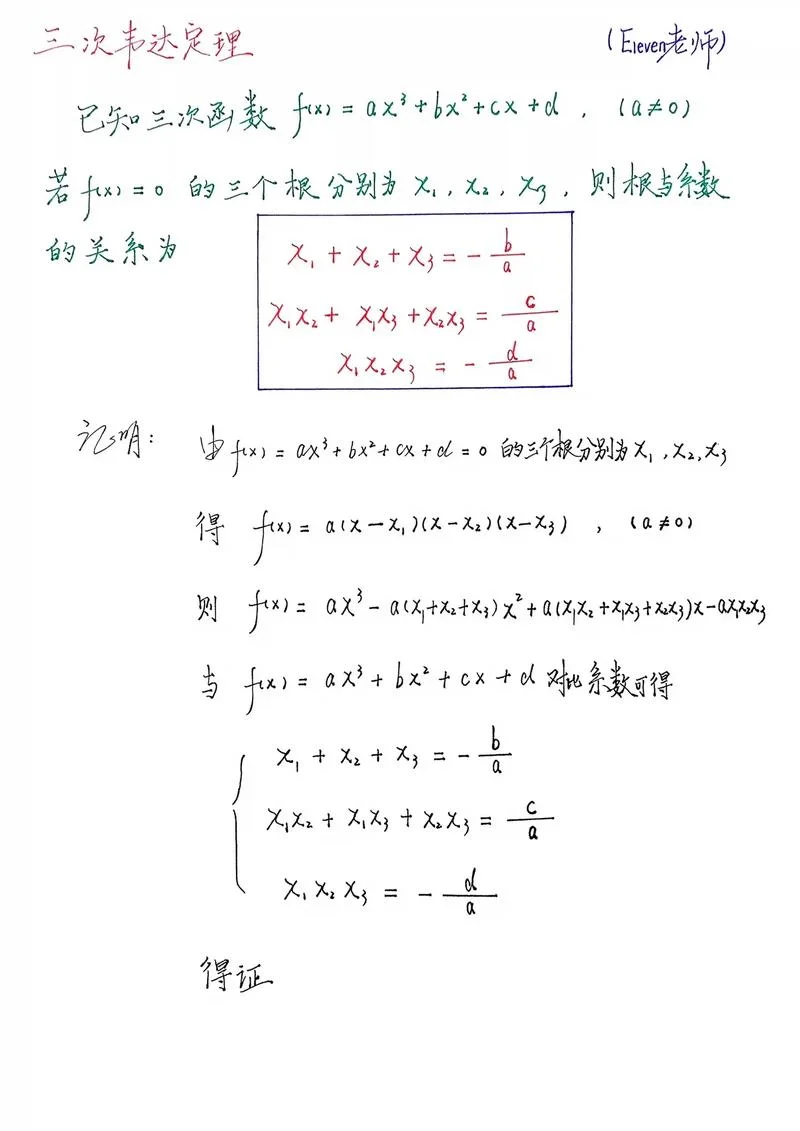 三次韦达定理 (Eleven老师)
已知三次函数 f(x) = ax³+bx²+cx+d , (a≠0)
若 f(x)=0 的三个根分别为 x₁, x₂, x₃, 则根与系数
的关系为
x₁ + x₂ + x₃ = - b/a
x₁x₂ + x₁x₃ + x₂x₃ = c/a
x₁x₂x₃ = - d/a
证明: 由 f(x) = ax³+bx²+cx+d = 0 的三个根分别为 x₁, x₂, x₃
得 f(x) = a(x-x₁)(x-x₂)(x-x₃) , (a≠0)
则 f(x) = ax³ - a(x₁+x₂+x₃)x² + a(x₁x₂+x₁x₃+x₂x₃)x - ax₁x₂x₃
与 f(x) = ax³ + bx² + cx + d 对比系数可得
x₁ + x₂ + x₃ = - b/a
x₁x₂ + x₁x₃ + x₂x₃ = c/a
x₁x₂x₃ = - d/a
得证